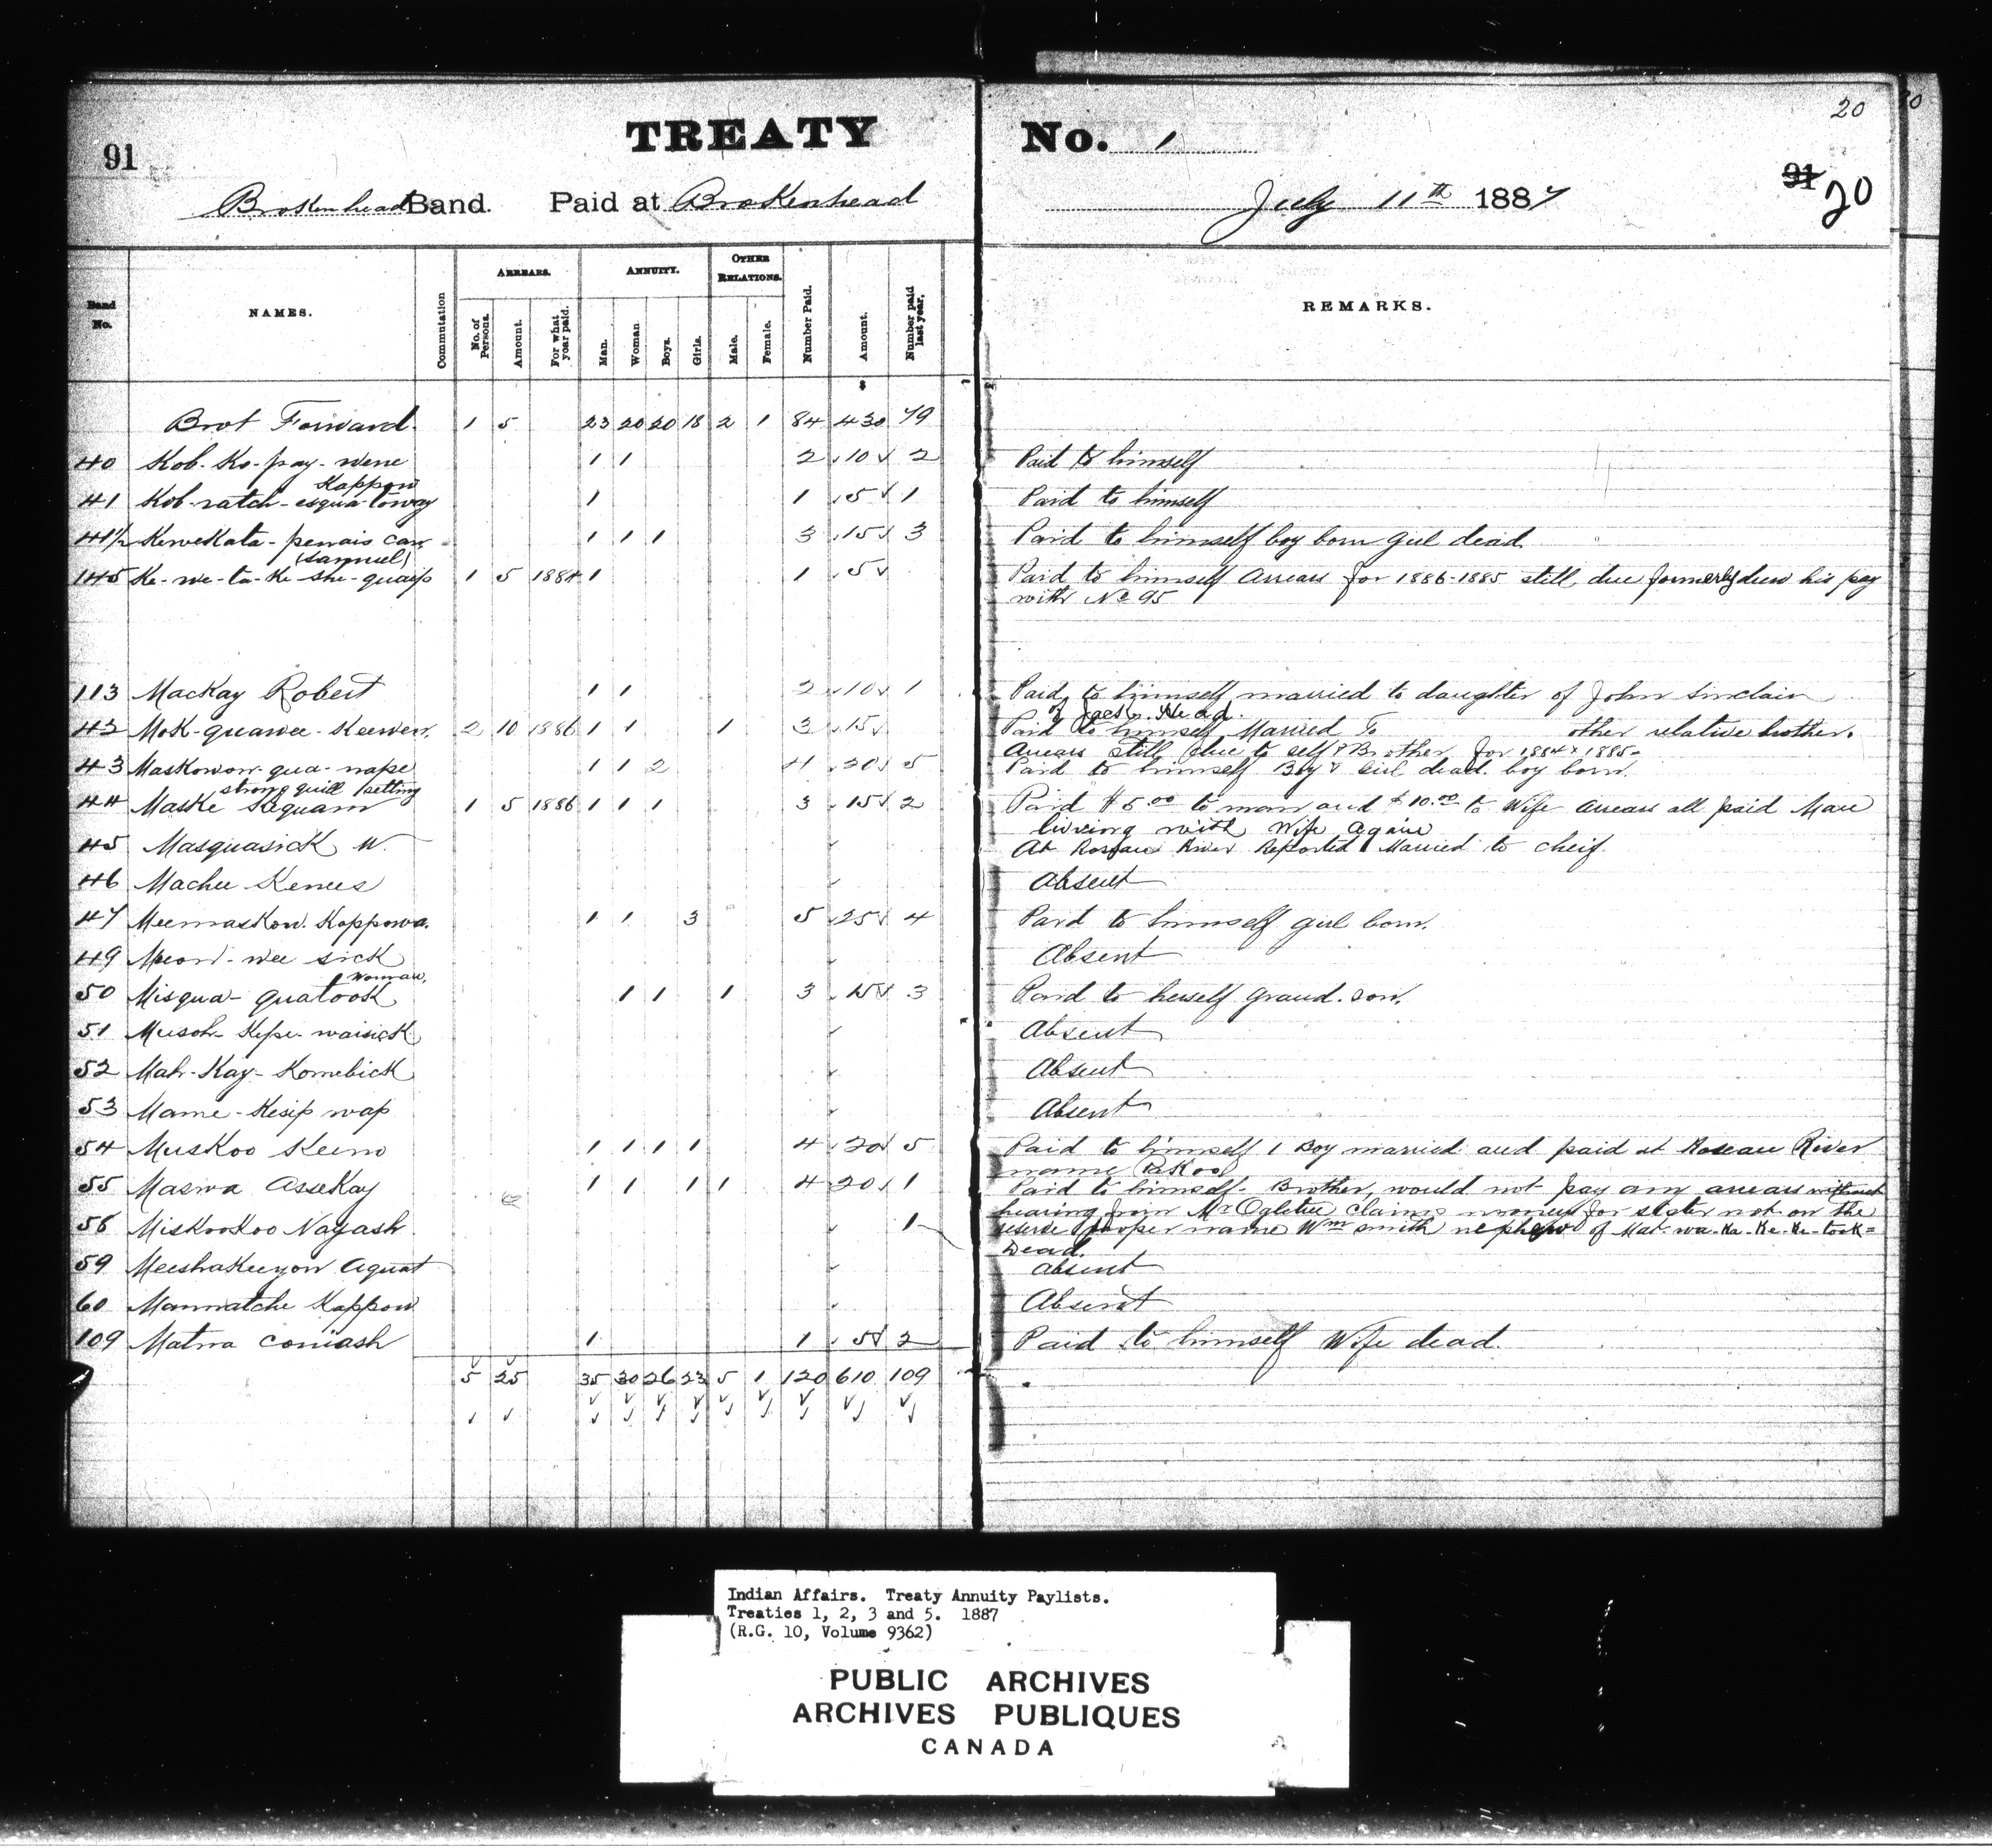 20
91 TREATY No. 1
91 20
Brokenhead Band. Paid at Brokenhead July 11th 1887
Band No. NAMES. Commutation ARREARS. ANNUITY. OTHER RELATIONS. Number Paid. Amount. Number paid last year. REMARKS.
No. of Persons. Amount. For what year paid. Man. Woman. Boys. Girls. Male. Female.
$
Brot Forward. 1 5 23 20 20 18 2 1 84 430 79
40 Kob-Ko-pay-wene 1 1 2 10 2 Paid to himself
Kappow
41 Kob-ratch-esqua-toway 1 1 5 1 Paid to himself
41½ Kewekata-penais 1 1 1 3 15 3 Paid to himself boy born girl dead
(Samuel)
145 Ke-we-ta-ke-she-quaip 1 5 1884 1 1 5 Paid to himself Arrears for 1886-1885 still due formerly drew his pay
with No 95
113 MacKay Robert 1 1 2 10 1 Paid to himself married to daughter of John Sinclair
of Jack Head.
42 Mok-quawee-Keewen. 2 10 1886 1 1 1 3 15 Paid to himself Married To other relative brother.
Arrears still due to self & Brother for 1884 & 1885-
43 Maskowon-qua-nape 1 1 2 4 20 5 Paid to himself Boy & Girl dead. boy born.
strong quill setting
44 Maske Sequam 1 5 1886 1 1 1 3 15 2 Paid $5.00 to man and $10.00 to Wife arrears all paid Man
living with Wife again
45 Masquasick W. At Roseau River Reported Married to cheif.
46 Machee Kenees Absent
47 Meemaskow. Kappowa. 1 1 3 5 25 4 Paid to himself girl born.
49 Meow-wee sick Absent
Woman.
50 Misqua-quatook 1 1 1 3 15 3 Paid to herself Grand.son.
51 Musoh-Kepe-waisick Absent
52 Mah-Kay-Komebick Absent
53 Mame-Kesip wap Absent
54 Muskoo Keeno 1 1 1 1 4 20 5 Paid to himself 1 Boy married and paid at Roseau River
name Pakoo
55 Maswa Assekay 1 1 1 1 4 20 1 Paid to himself- Brother, would not pay any arrears without
hearing from Mr Ogletree claims money for sister not on the
56 Miskookoo Nayash 1 reserve proper name Wm Smith nephew of Mat-wa-Ka-Ke-Ke-took=
Dead.
59 Meeshakeeyon Aquat absent
60 Manmatche Kappow Absent
109 Matwa Comash 1 1 5 2 Paid to himself Wife dead.
5 25 35 30 26 23 5 1 120 610 109
Indian Affairs. Treaty Annuity Paylists.
Treaties 1, 2, 3 and 5. 1887
(R.G. 10, Volume 9362)
PUBLIC ARCHIVES
ARCHIVES PUBLIQUES
CANADA